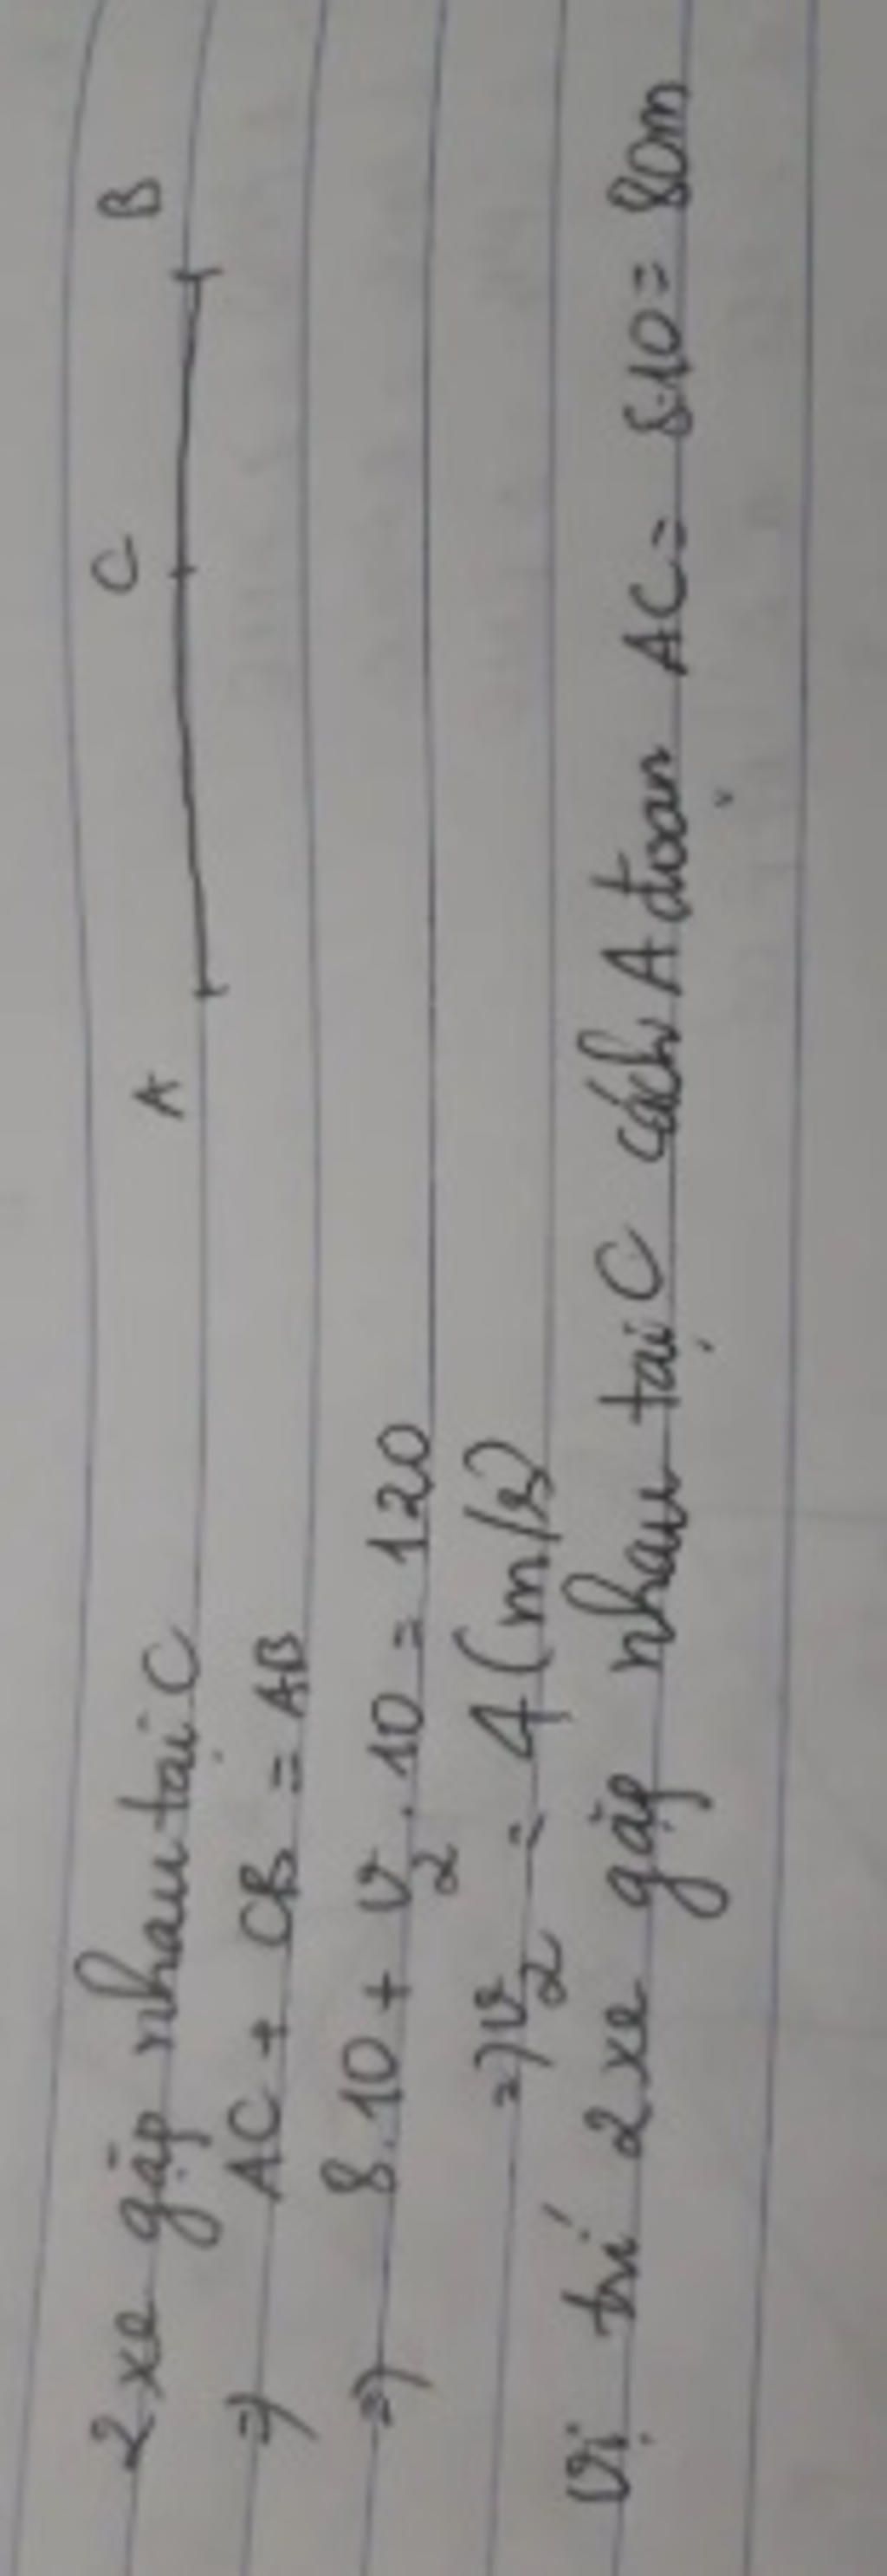 A C B
2 xe gặp nhau tại C
=) AC + CB = AB
=) 8.10 + v₂ . 10 = 120
=) v₂ = 4 (m/s)
Vị trí 2 xe gặp nhau tại C cách A đoạn AC = 8.10 = 80m